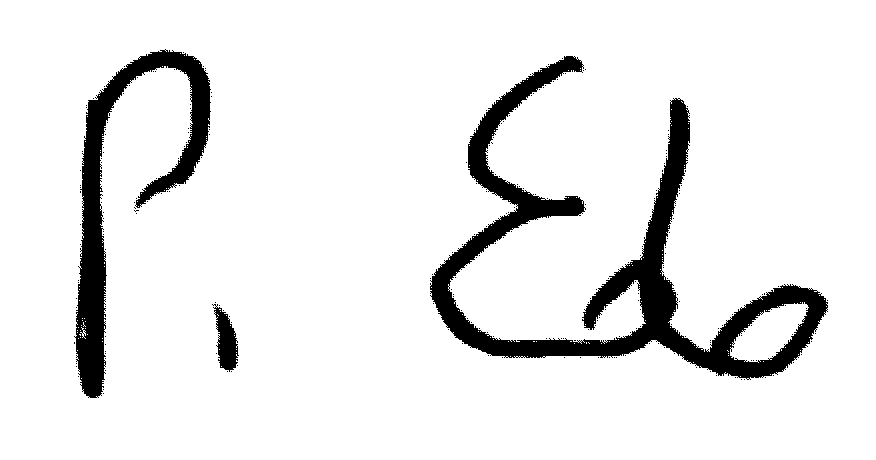 P. Edo